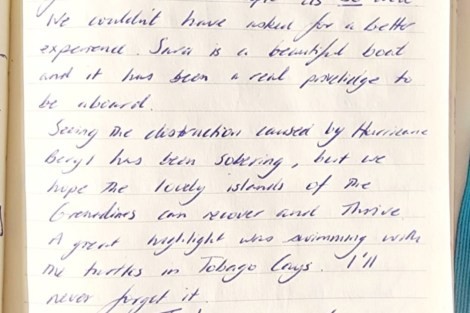 We couldn't have asked for a better
experience. Sara is a beautiful boat
and it has been a real priviledge to
be aboard.
Seeing the destruction caused by Hurricane
Beryl has been sobering, but we
hope the lovely islands of the
Grenadines can recover and thrive.
A great highlight was swimming with
the turtles in Tobago Cays. I'll
never forget it.